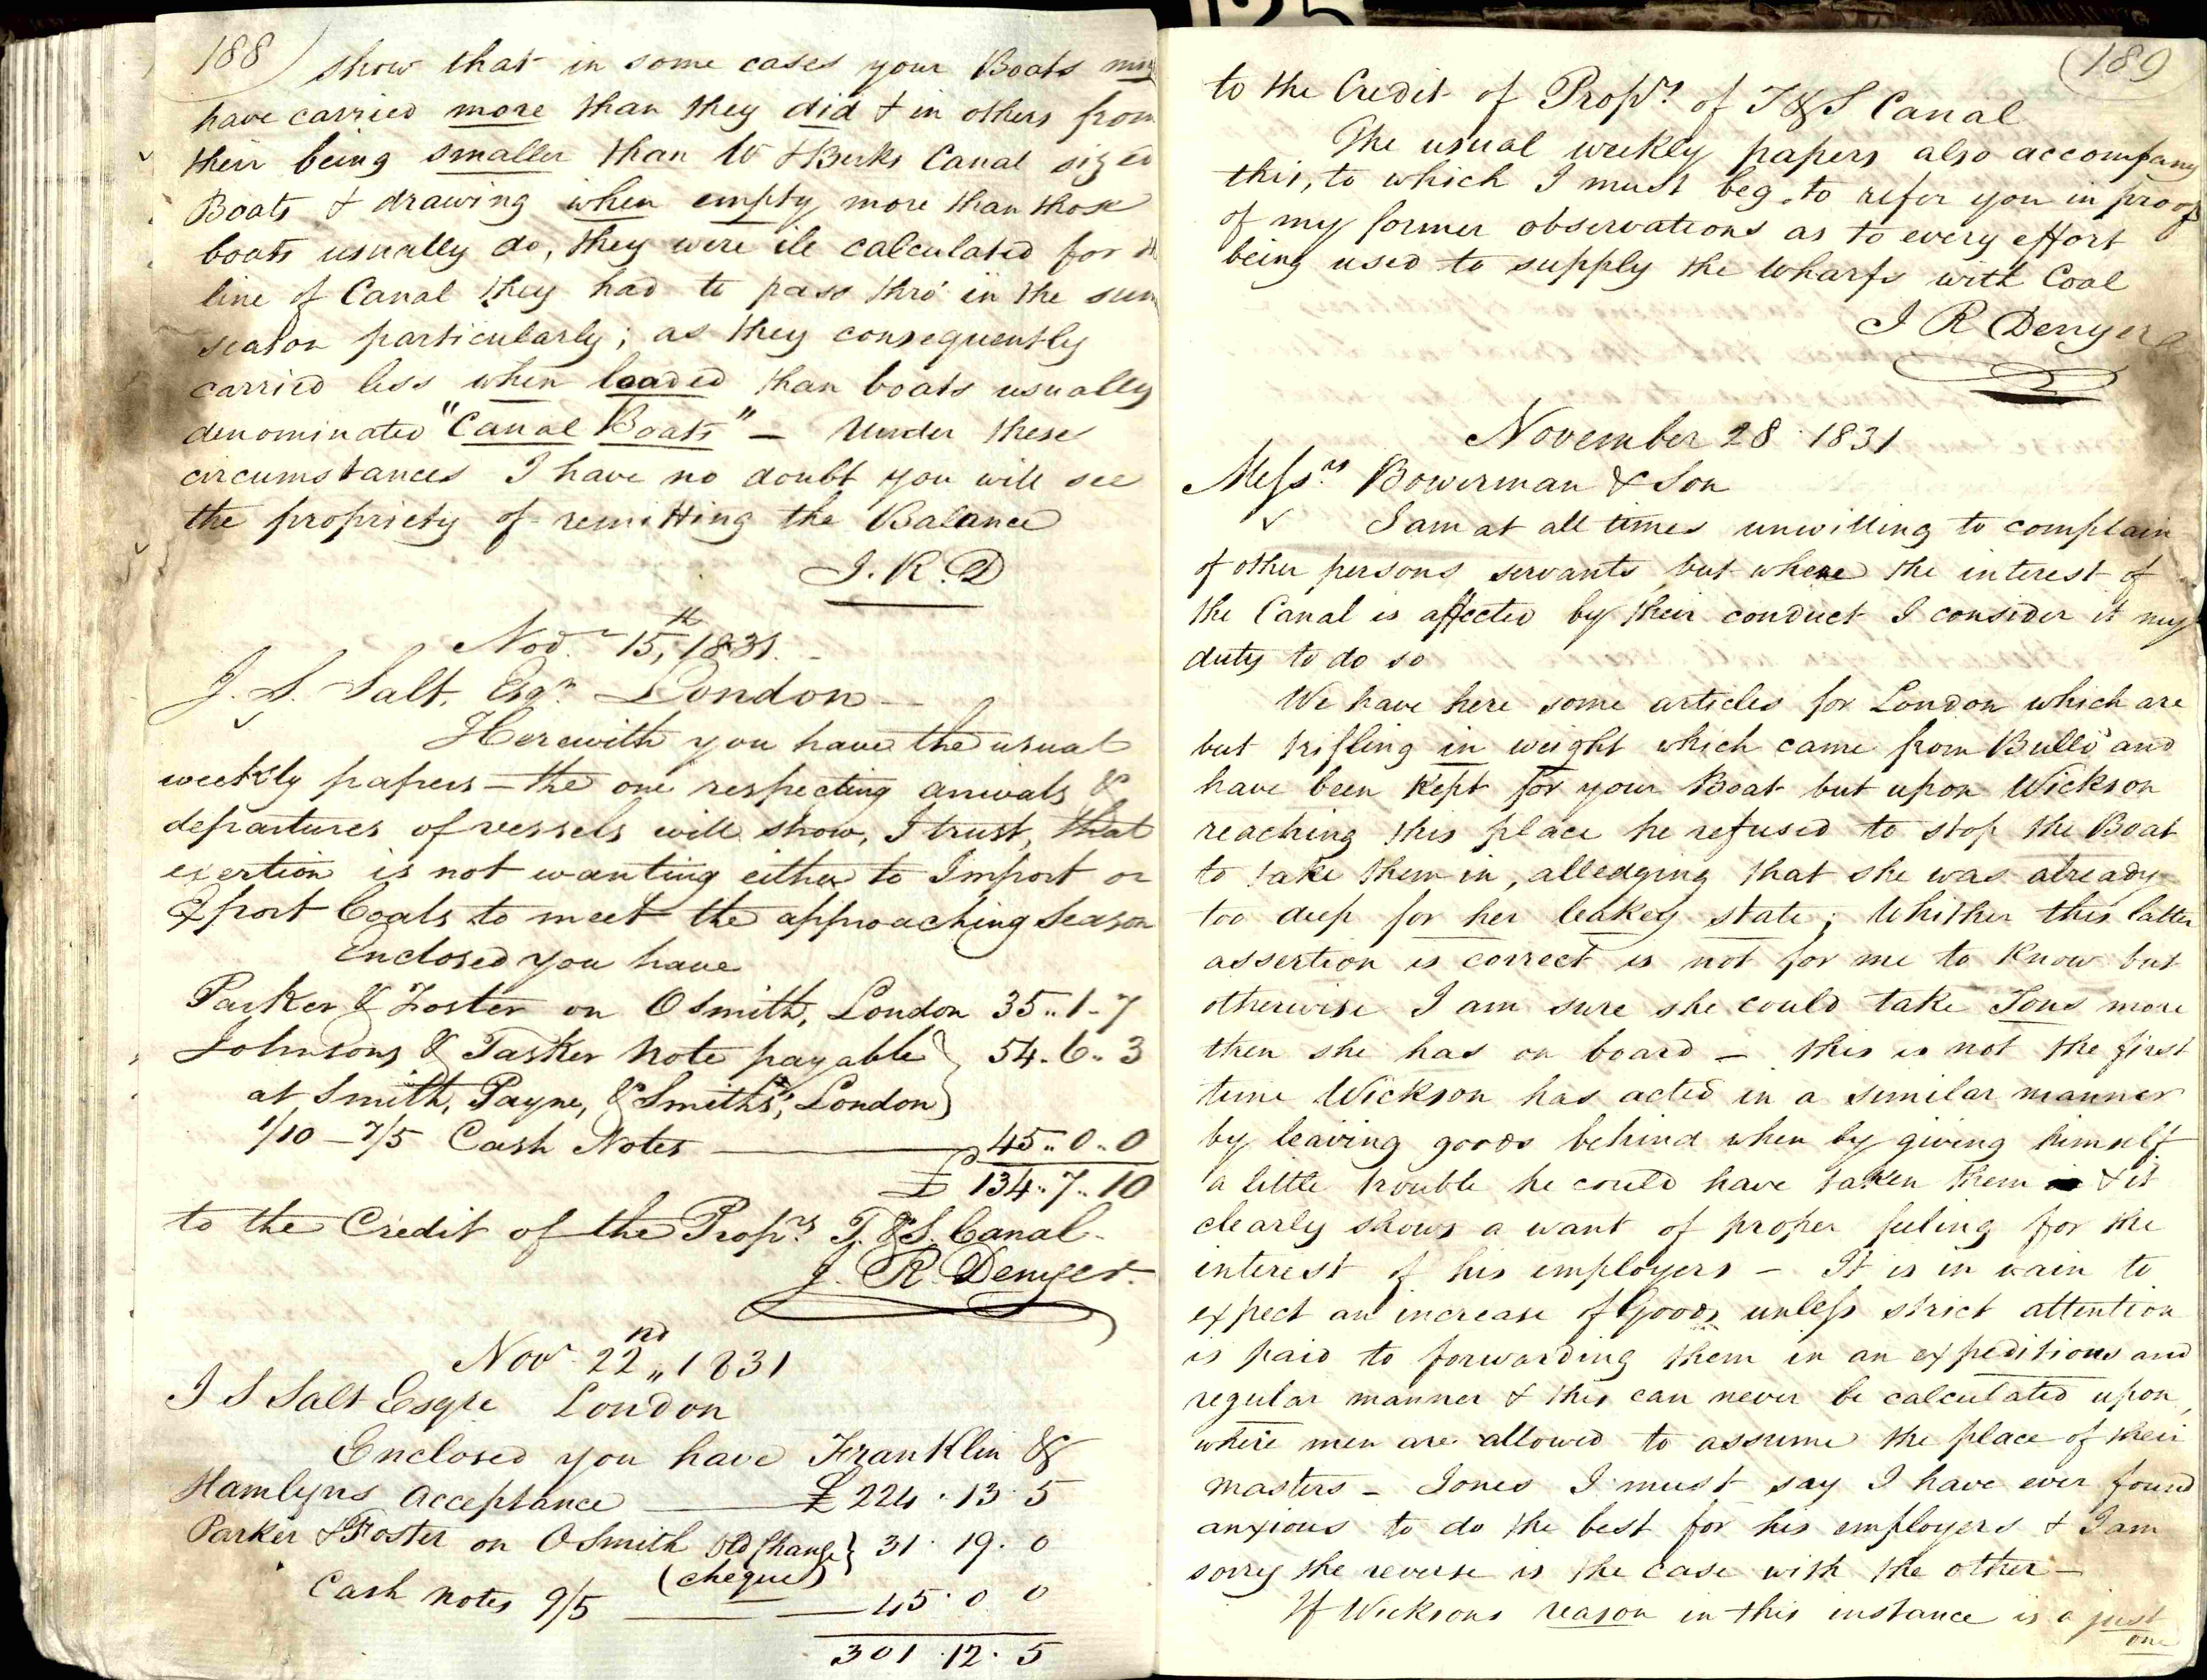 188) show that in some cases your Boats may
have carried more than they did & in others from
their being smaller than W & Berks Canal sized
Boats & drawing when empty more than those
boats usually do, they were ill calculated for
line of Canal they had to pass thro' in the
season particularly; as they consequently
carried less when loaded than boats usually
denominated "Canal Boats" — Under these
circumstances I have no doubt you will see
the propriety of remitting the Balance
J. R. D
Novr. 15th, 1831.
J. S. Salt, Esqr. London —
Herewith you have the usual
weekly papers — the one respecting arrivals &
departures of vessels will show, I trust, that
exertion is not wanting either to Import or
Export Coals to meet the approaching Season
Enclosed you have
Parker & Foster on O Smith, London 35..1-7
Johnsons & Tasker Note payable } 54.6..3
at Smith, Payne, & Smith's, London }
1/10 — 7/5 Cash Notes — 45..0..0
£ 134..7..10
to the Credit of the Proprs. T. & S. Canal.
J. R. Denyer.
Novr 22nd,, 1831
J S Salt Esqre London
Enclosed you have Franklin &
Hamlyns Acceptance — £ 224.13.5
Parker & Foster on O Smith Old Change } 31.19.0
(cheque)
Cash notes 9/5 — 45.0 0
301.12.5
(189
to the Credit of Proprs. of T & S Canal
The usual weekly papers also accompany
this, to which I must beg to refer you in proof
of my former observations as to every effort
being used to supply the Wharfs with Coal
J R Denyer
November 28 1831
Messrs. Bowerman & Son
I am at all times unwilling to complain
of other persons servants but where the interest of
the Canal is affected by their conduct I consider it my
duty to do so
We have here some articles for London which are
but trifling in weight which came from Bullo and
have been kept for your Boat but upon Wickson
reaching this place he refused to stop the Boat
to take them in, alledging that she was already
too deep for her leakey state; Whither this latter
assertion is correct is not for me to know but
otherwise I am sure she could take Tons more
then she has on board — this is not the first
time Wickson has acted in a similar manner
by leaving goods behind when by giving himself
a little trouble he could have taken them & it
clearly shows a want of proper feeling for the
interest of his employers — It is in vain to
expect an increase of Goods unless strict attention
is paid to forwarding them in an expeditious and
regular manner & this can never be calculated upon,
where men are allowed to assume the place of their
masters — Jones I must say I have ever found
anxious to do the best for his employers & I am
sorry the reverse is the case with the other —
If Wicksons reason in this instance is a just
one